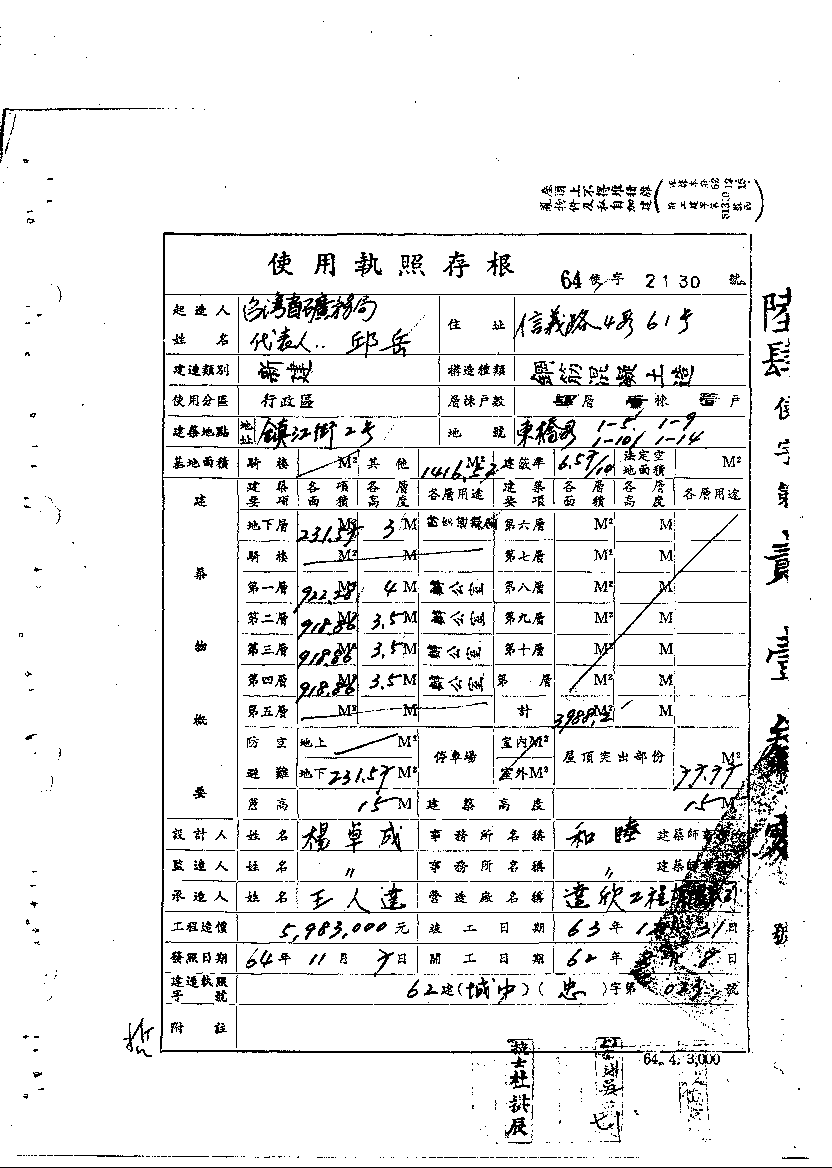 使用執照存根
64使字2130號
起造人
姓名
台灣省礦務局
代表人：邱岳
住址
信義路4段61号
建造類別
新建
構造種類
鋼筋混凝土造
使用分區
行政區
層棟戶數
層 棟 戶
建築地點
地址
鎮江街2号
地號
東橋段 1-5 1-9
1-10 1-14
基地面積
騎樓 M²
其他
1416.57 M²
建蔽率
6.5/10
法定空地面積
M²
建築物概要
建築要項 各項面積 各層高度 各層用途 建築要項 各層面積 各層高度 各層用途
地下層 231.57 M² 3 M 第六層 M² M
騎樓 M² M 第七層 M² M
第一層 922.28 M² 4 M 辦公室 第八層 M² M
第二層 918.86 M² 3.5 M 辦公室 第九層 M² M
第三層 918.86 M² 3.5 M 辦公室 第十層 M² M
第四層 918.86 M² 3.5 M 辦公室 第 層 M² M
第五層 M² M 計 M² M
防空避難
地上 M²
地下 231.57 M²
停車場
室內 M²
室外 M²
屋頂突出部份
M²
簷高 15 M 建築高度 15 M
設計人 姓名 楊卓成 事務所名稱 和睦 建築師事
監造人 姓名 〃 事務所名稱 〃 建築師
承造人 姓名 王人達 營造廠名稱 達欣工程
工程造價 5,983,000元 竣工日期 63年 31日
發照日期 64年11月 日 開工日期 62年 8日
建造執照字號 62建(城中)(忠)字第 號
附註
64. 4. 3,000
技士杜洪展
陸肆使字第貳壹叁 號